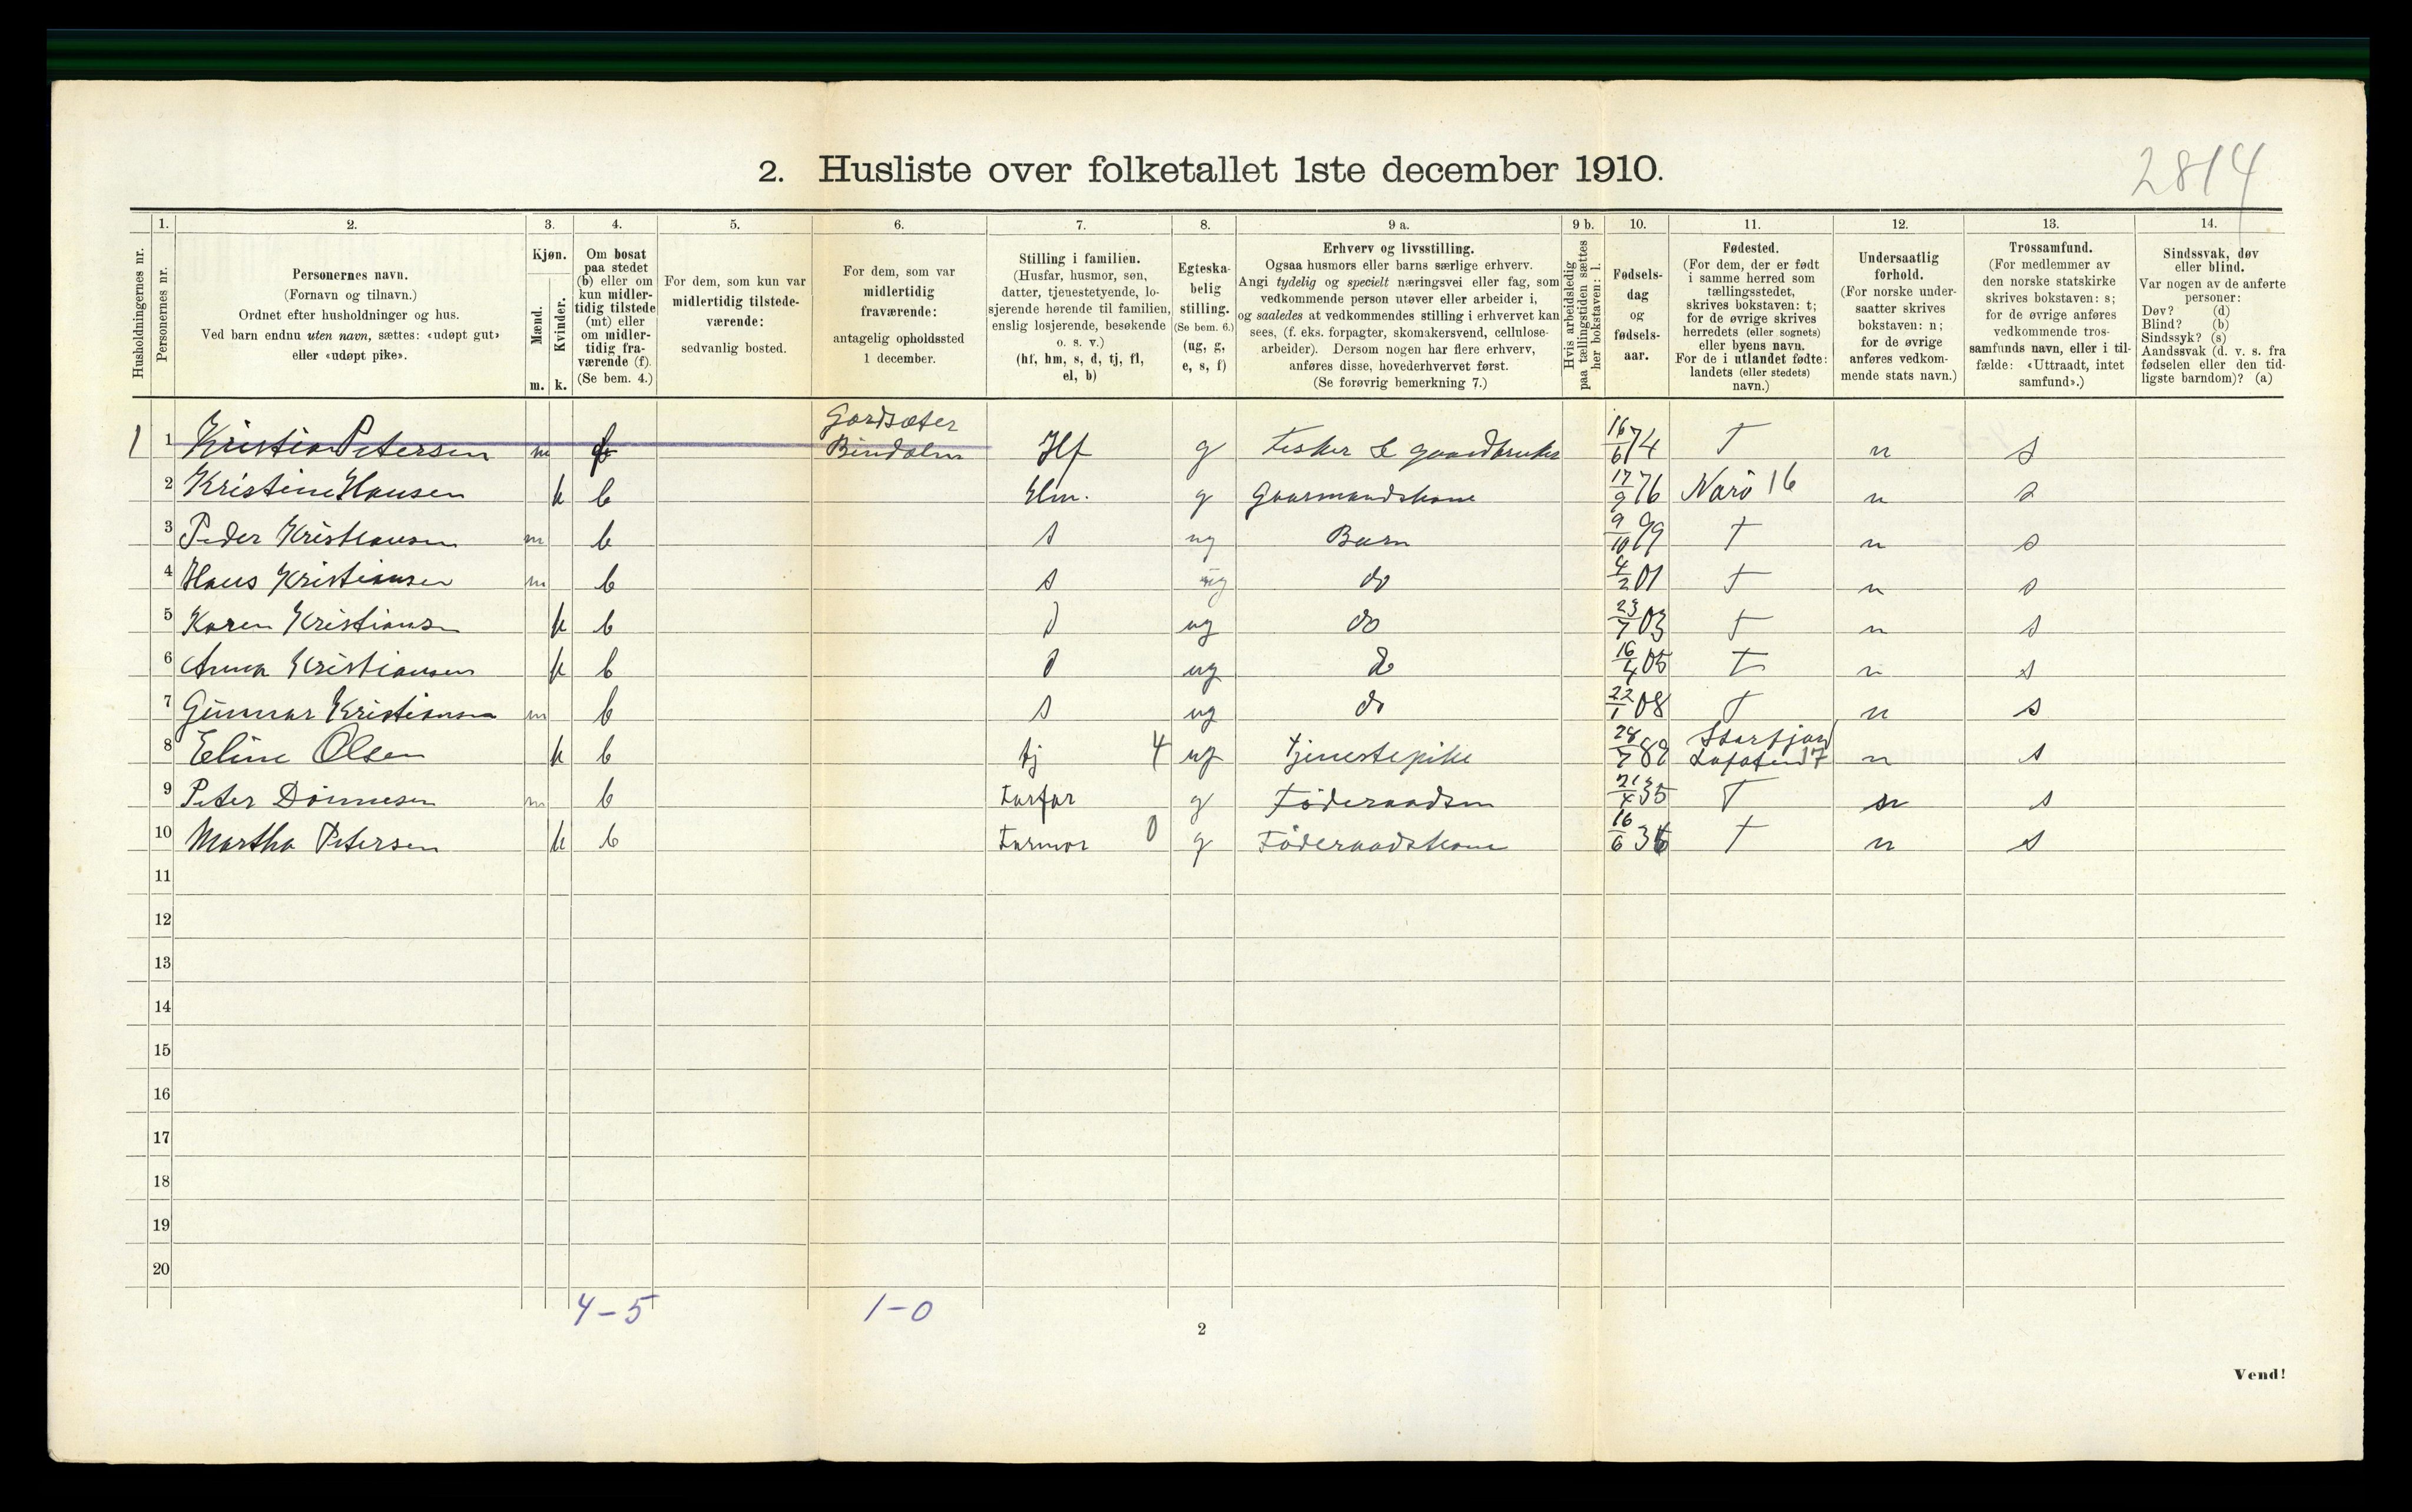 2814
2. Husliste over folketallet 1ste december 1910.
Husholdningernes nr.
1.
Personernes nr.
2.
Personernes navn.
(Fornavn og tilnavn.)
Ordnet efter husholdninger og hus.
Ved barn endnu uten navn, sættes: «udøpt gut»
eller «udøpt pike».
3.
Kjøn.
Mænd.
Kvinder.
m. k.
4.
Om bosat
paa stedet
(b) eller om
kun midler-
tidig tilstede
(mt) eller
om midler-
tidig fra-
værende (f).
(Se bem. 4.)
5.
For dem, som kun var
midlertidig tilstede-
værende:
sedvanlig bosted.
6.
For dem, som var
midlertidig
fraværende:
antagelig opholdssted
1 december.
7.
Stilling i familien.
(Husfar, husmor, søn,
datter, tjenestetyende, lo-
sjerende hørende til familien,
enslig losjerende, besøkende
o. s. v.)
(hf, hm, s, d, tj, fl,
el, b)
8.
Egteska-
belig
stilling.
(Se bem. 6.)
(ug, g,
e, s, f)
9 a.
Erhverv og livsstilling.
Ogsaa husmors eller barns særlige erhverv.
Angi tydelig og specielt næringsvei eller fag, som
vedkommende person utøver eller arbeider i,
og saaledes at vedkommendes stilling i erhvervet kan
sees, (f. eks. forpagter, skomakersvend, cellulose-
arbeider). Dersom nogen har flere erhverv,
anføres disse, hovederhvervet først.
(Se forøvrig bemerkning 7.)
9 b.
Hvis arbeidsledig
paa tællingstiden sættes
her bokstaven: l.
10.
Fødsels-
dag
og
fødsels-
aar.
11.
Fødested.
(For dem, der er født
i samme herred som
tællingsstedet,
skrives bokstaven: t;
for de øvrige skrives
herredets (eller sognets)
eller byens navn.
For de i utlandet fødte:
landets (eller stedets)
navn.)
12.
Undersaatlig
forhold.
(For norske under-
saatter skrives
bokstaven: n;
for de øvrige
anføres vedkom-
mende stats navn.)
13.
Trossamfund.
(For medlemmer av
den norske statskirke
skrives bokstaven: s;
for de øvrige anføres
vedkommende tros-
samfunds navn, eller i til-
fælde: «Uttraadt, intet
samfund».)
14.
Sindssvak, døv
eller blind.
Var nogen av de anførte
personer:
Døv? (d)
Blind? (b)
Sindssyk? (s)
Aandssvak (d. v. s. fra
fødselen eller den tid-
ligste barndom)? (a)
Gardsæter
1 1 Kristian Petersen m f Bindalen Hf g Fisker & gaardbruker 16/6 74 T n s
2 Kristine Hansen k b Hm. g Gaarmandskone 17/9 76 Narö 16 n s
3 Peder Kristiansen m b s ug Barn 9/10 99 T n s
4 Hans Kristiansen m b s ug do 4/2 01 T n s
5 Karen Kristiansen k b d ug do 23/7 03 T n s
6 Anna Kristiansen k b d ug do 16/4 05 T n s
7 Gunnar Kristiansen m b s ug do 22/1 08 T n s
8 Eline Olsen k b tj 4 ug Tjenestepike 28/7 82 Lofoten 17 n s
9 Peter Dönnesen m b Farfar g Föderaadsm 21/4 35 T n s
10 Martha Petersen k b Farmor 0 g Föderaadskone 16/6 36 T n s
11
12
13
14
15
16
17
18
19
20
4-5 1-0
2
Vend!